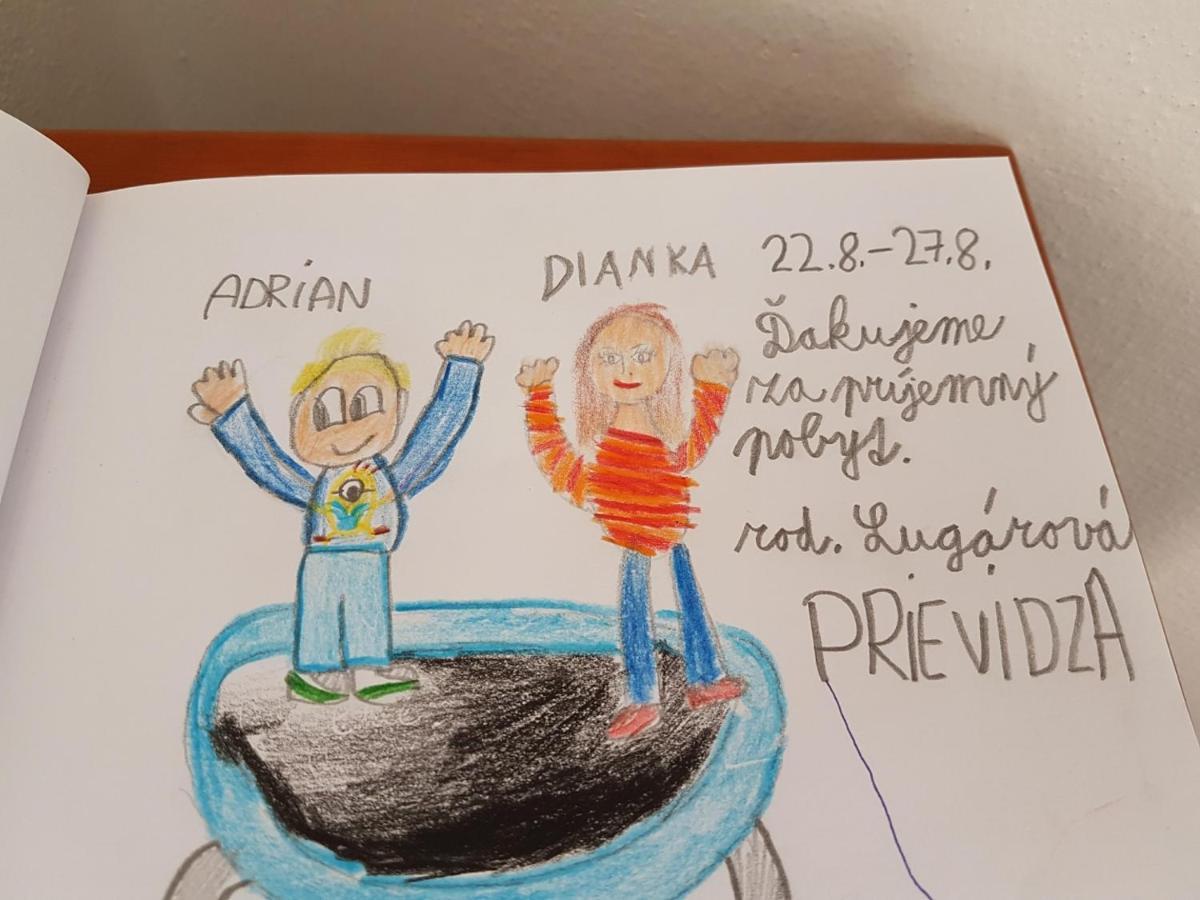 ADRIAN
DIANKA
22.8.-27.8.
Ďakujeme
za príjemný
pobyt.
rod. Lugárová
PRIEVIDZA